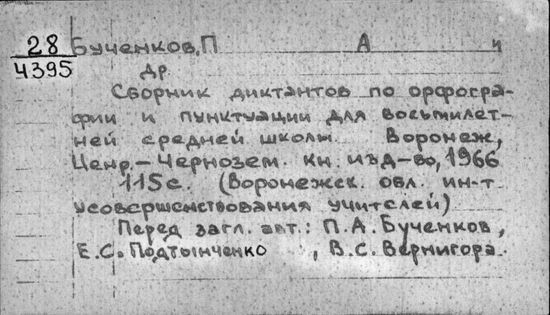 28 Бученков, П А и
4395 др.
Сборник диктантов по орфогра-
фии и пунктуации для восьмилет-
ней средней школы. Воронеж,
Ценр.-Чернозем. кн. изд-во, 1966
115 с. (Воронежск. обл. ин-т
усовершенствования учителей)
Перед загл. авт.: П.А. Бученков,
Е.С. Подтынченко, В.С. Вернигора.